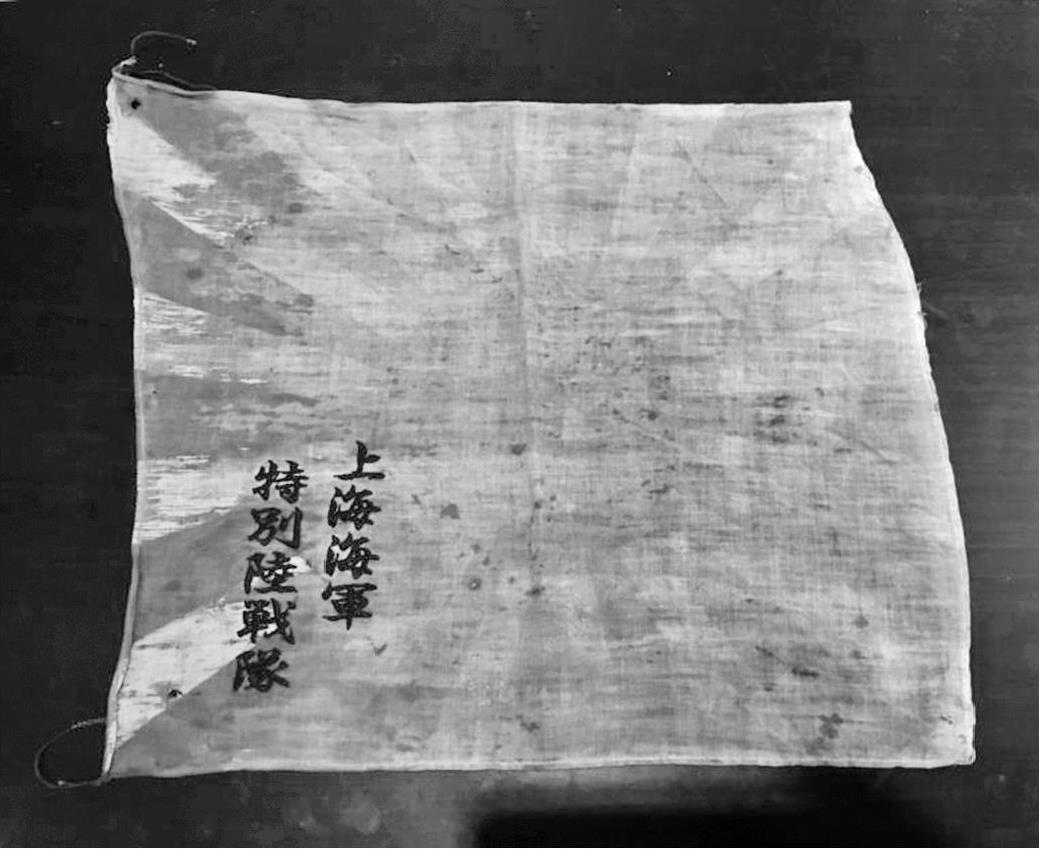 上海海軍
特別陸戦隊